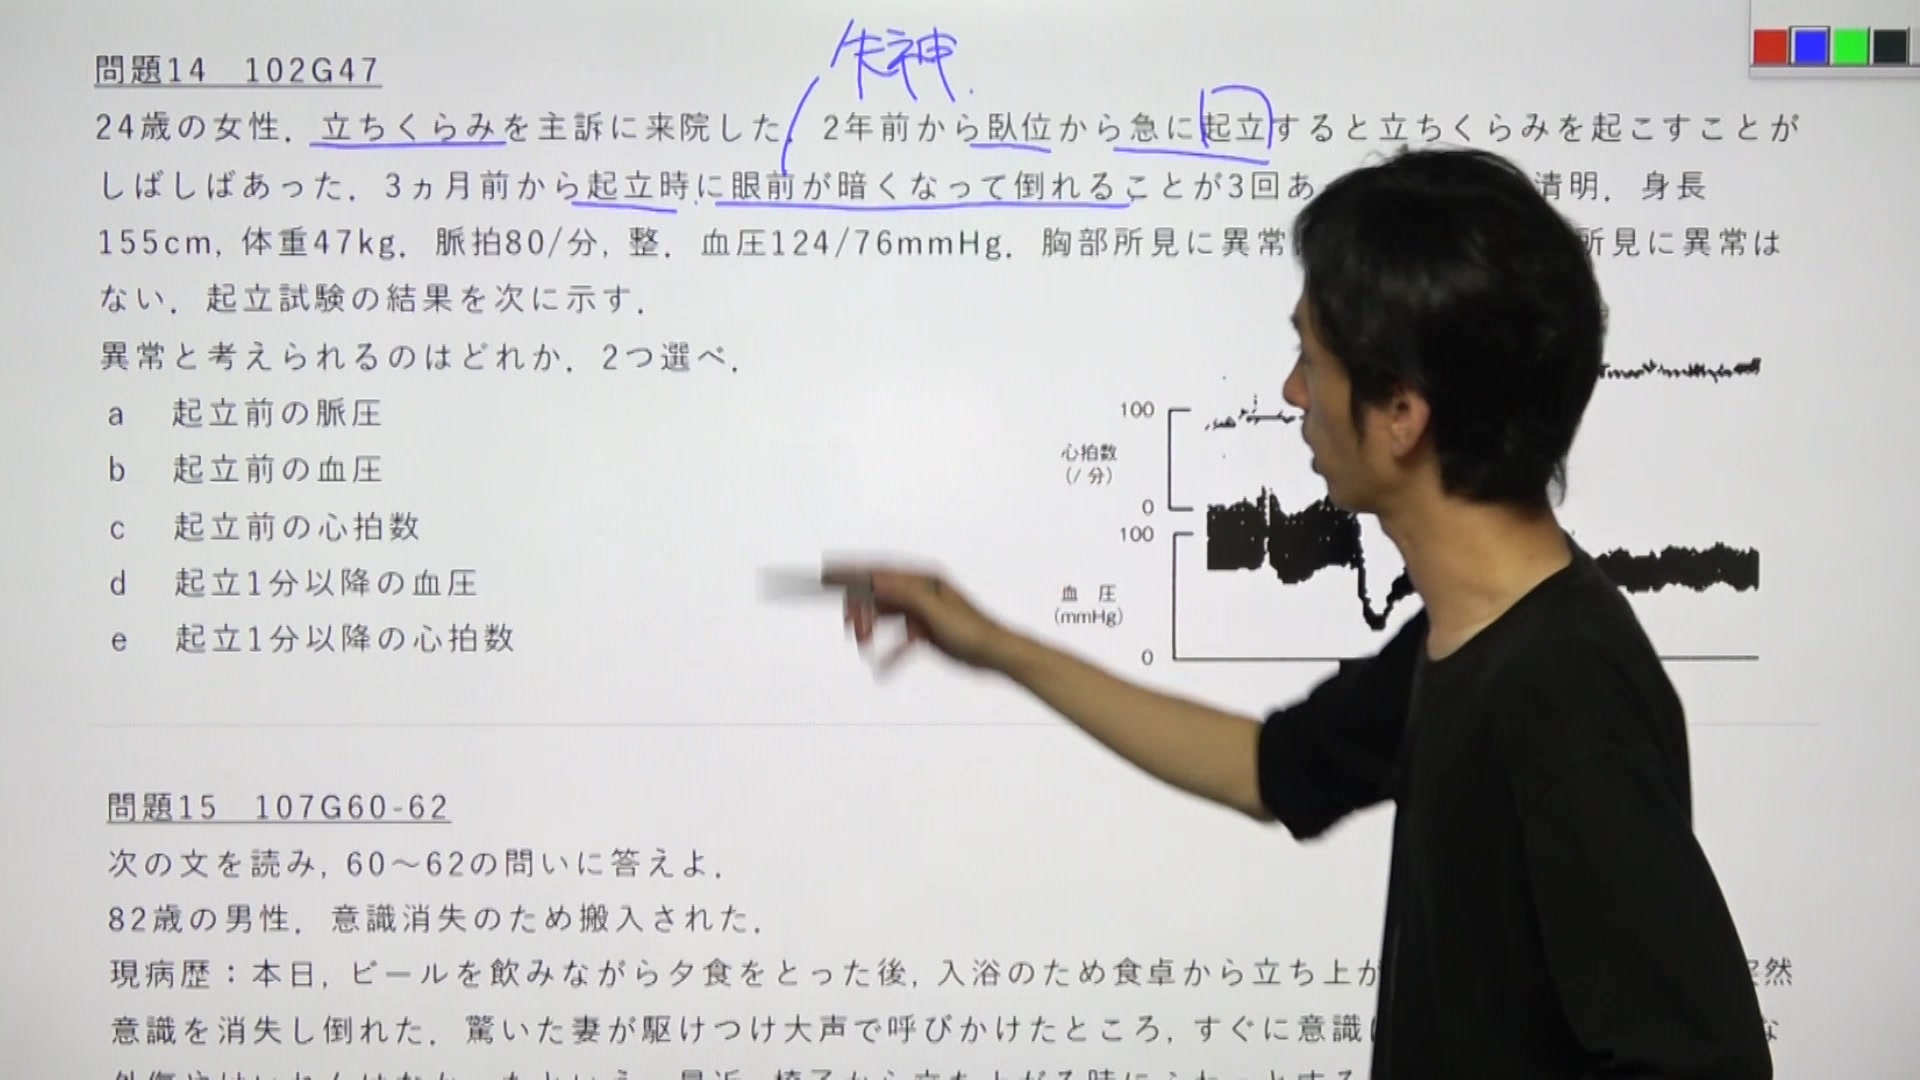 失神.
問題14　102G47
24歳の女性．立ちくらみを主訴に来院した．2年前から臥位から急に起立すると立ちくらみを起こすことが
しばしばあった．3ヵ月前から起立時に眼前が暗くなって倒れることが3回あ 清明．身長
155cm, 体重47kg．脈拍80/分, 整．血圧124/76mmHg．胸部所見に異常 所見に異常は
ない．起立試験の結果を次に示す．
異常と考えられるのはどれか．2つ選べ．
a　起立前の脈圧
b　起立前の血圧
c　起立前の心拍数
d　起立1分以降の血圧
e　起立1分以降の心拍数
100
心拍数
(/分)
0
100
血　圧
(mmHg)
0
問題15　107G60-62
次の文を読み, 60～62の問いに答えよ．
82歳の男性．意識消失のため搬入された．
現病歴：本日, ビールを飲みながら夕食をとった後, 入浴のため食卓から立ち上が 然
意識を消失し倒れた．驚いた妻が駆けつけ大声で呼びかけたところ, すぐに意識 な